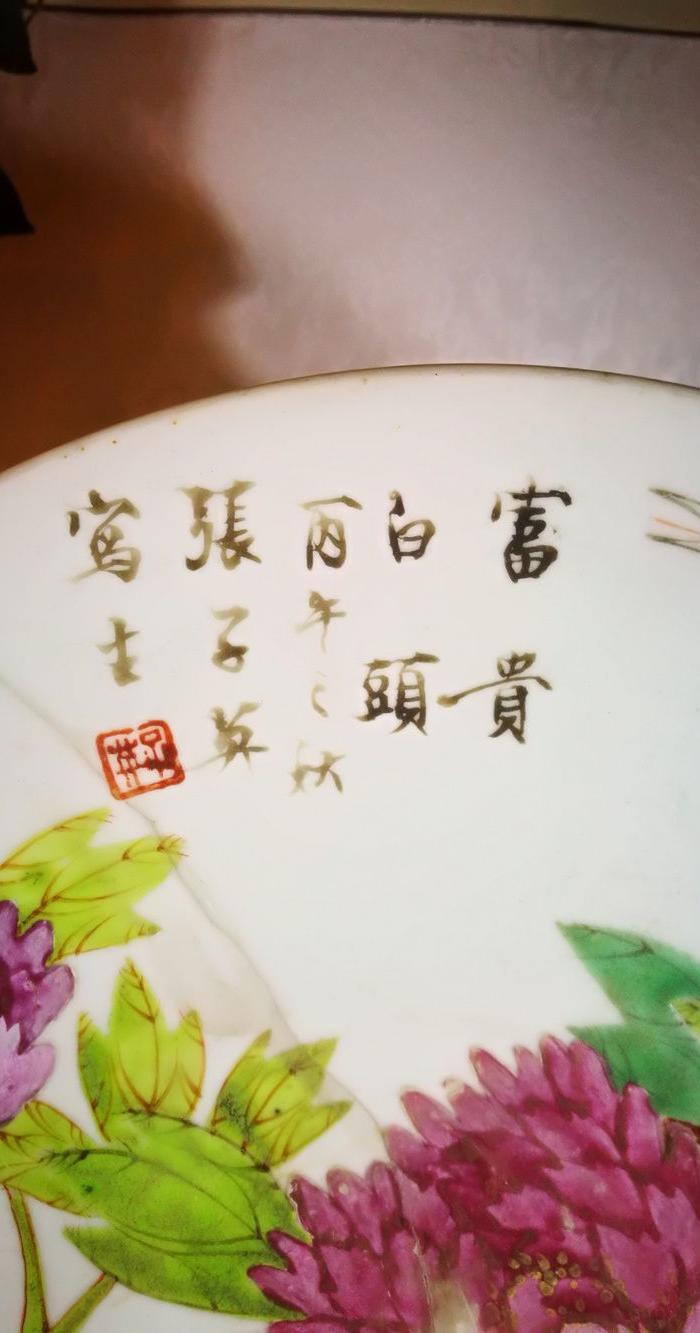 富貴
白頭
丙午之秋
張子英
寫生